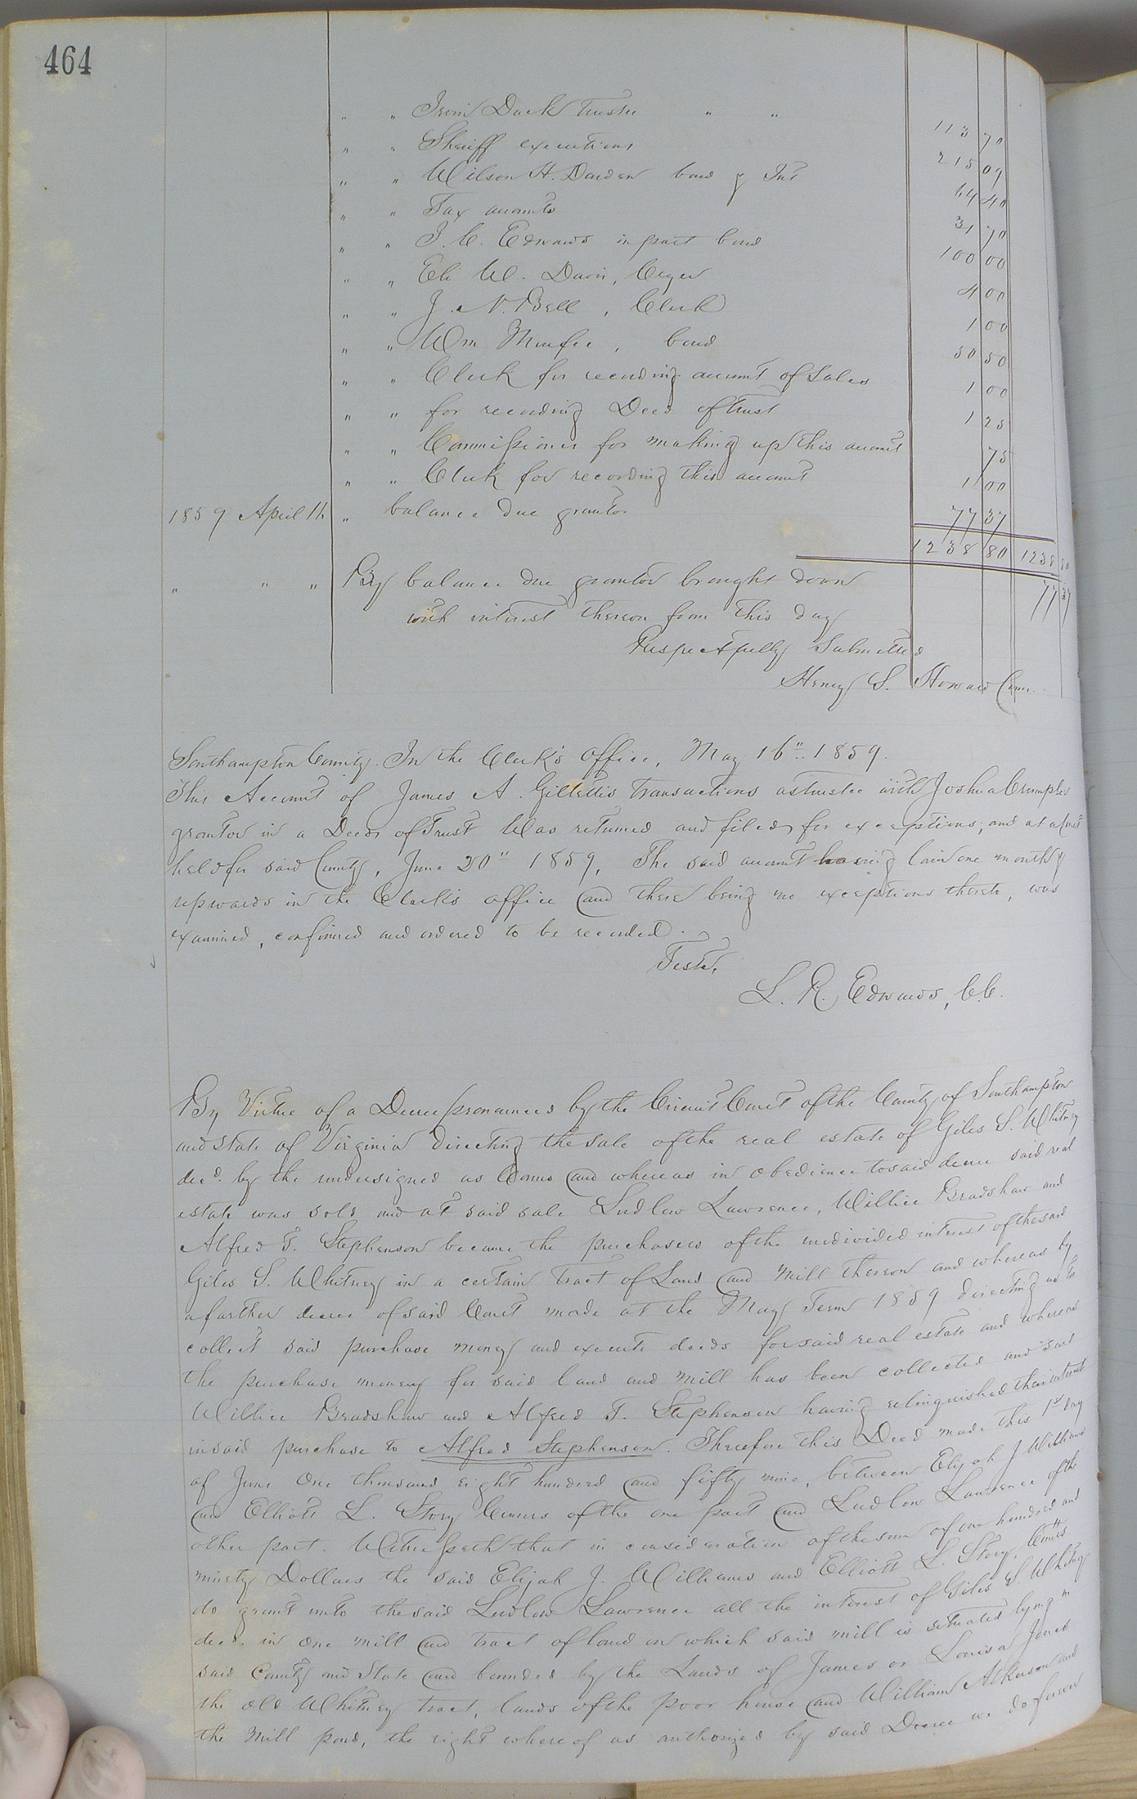 464
" " Irvin Duck trustee " " 113 70
" " Sheriff executions 215 09
" " Wilson H. Darden bond & Int 64 40
" " Tax accounts 31 70
" " J. C. Edwards in part bond 100 00
" " Eli W. Davis, Cryer 4 00
" " J. N. Bell, Clerk 1 00
" " Wm , bond 50 50
" " Clerk for recording account of Sales 1 00
" " for recording Deed of Trust 1 25
" " Commissioner for making up this account 75
" " Clerk for recording this account 1 00
1859 April 11 " balance due grantor 77 37
1238 80 1238 80
" " " By balance due grantor brought down 77 37
with interest thereon from this day
Respectfully Submitted
Henry S. Howard Com.
Southampton County. In the Clerk's Office, May 16". 1859.
This Account of James A. Gillett's transactions as trustee with Joshua Crumpler
grantor in a Deed of Trust Was returned and filed for exceptions, and at a Court
held for said County, June 20" 1859, The said account having lain one month &
upwards in the Clerk's office and there being no exceptions thereto, was
examined, confirmed and ordered to be recorded.
Teste,
L. R. Edwards, C.C.
By Virtue of a Decree pronounced by the Circuit Court of the County of Southampton
and State of Virginia directing the sale of the real estate of Giles S. Whitney
decd. by the undersigned as Comrs and whereas in obedience to said decree said real
estate was sold and at said sale Ludlow Lawrence, Willie Bradshaw and
Alfred T. Stephenson became the purchasers of the undivided interest of the said
Giles S. Whitney in a certain tract of Land and Mill thereon and whereas by
a further decree of said Court made at the May Term 1859 directing us to
collect said purchase money and execute deeds for said real estate and whereas
the purchase money for said land and mill has been collected and said
Willie Bradshaw and Alfred T. Stephenson having relinquished their interest
in said purchase to Alfred Stephenson. Therefore this Deed made this 1st day
of June One thousand eight hundred and fifty nine, between Elijah J. Williams
and Elliott L. Story Comrs of the one part and Ludlow Lawrence of the
other part. Witnesseth that in consideration of the sum of one hundred and
ninety Dollars the said Elijah J. Williams and Elliott L. Story, Comrs
do grant unto the said Ludlow Lawrence all the interest of Giles S Whitney
decd. in one mill and tract of land on which said mill is situated lying in
said County and State and bounded by the Lands of James or Louisa Jones
the old Whitney tract, lands of the poor house and William Atkinson and
the Mill pond, the right whereof as authorized by said Decree we do forever